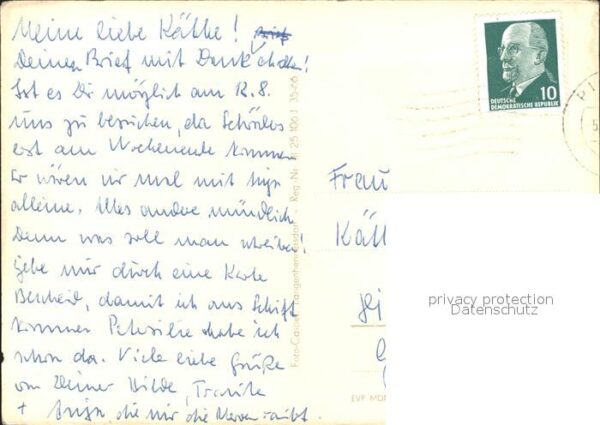 Meine liebe Käthe!
Deinen Brief mit Dank erhalten!
Ist es Dir möglich am 12.8.
uns zu besuchen, da Schönles
erst am Wochenende kommen
Er wären wir mal mit
alleine. Alles andere mündlich
Denn was soll man schreiben!
gebe mir durch eine Karte
Bescheid, damit ich aus Schift
kommen Petersilie habe ich
schon da. Viele liebe Grüße
von Deiner Hilde, Traute
+ Anja, die mir die Nerven raubt.
Reg.-Nr. 25 106 J 35-66
10
DEUTSCHE
DEMOKRATISCHE REPUBLIK
Frau
Kät
privacy protection
Datenschutz